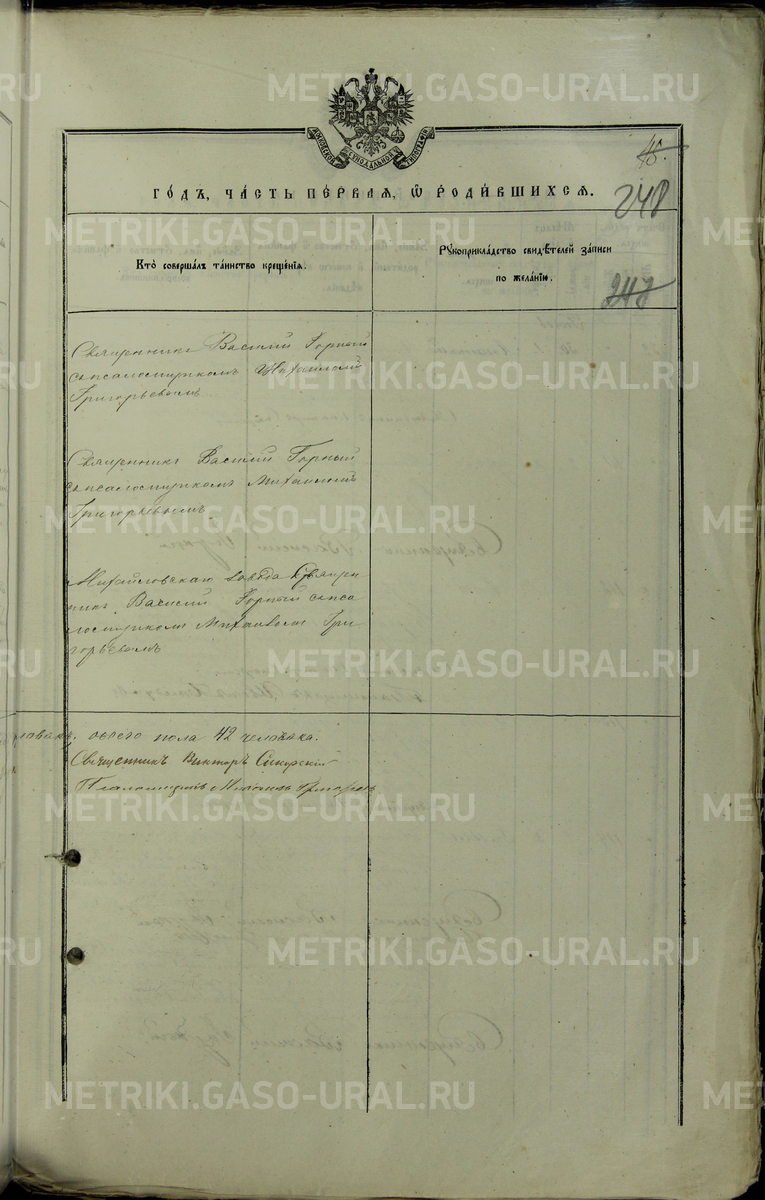 METRIKI.GASO-URAL.RU
45.
годъ, часть первая, ѿ родившихся.
248
Кто совершалъ таинство крещенія.
Рукоприкладство свидѣтелей записи
по желанію.
248
Священникъ Василій Горный
съ псаломщикомъ Михаиломъ
Григорьевымъ
Священникъ Василій Горный
съ псаломщикомъ Михаиломъ
Григорьевымъ
Михайловскаго завода Священ
никъ Василій Горный съ пса
ломщикомъ Михаиломъ Гри
горьевымъ
обоего пола 42 человѣка.
Священникъ Викторъ Сикорскій
Псаломщикъ Михаилъ Григорьевъ